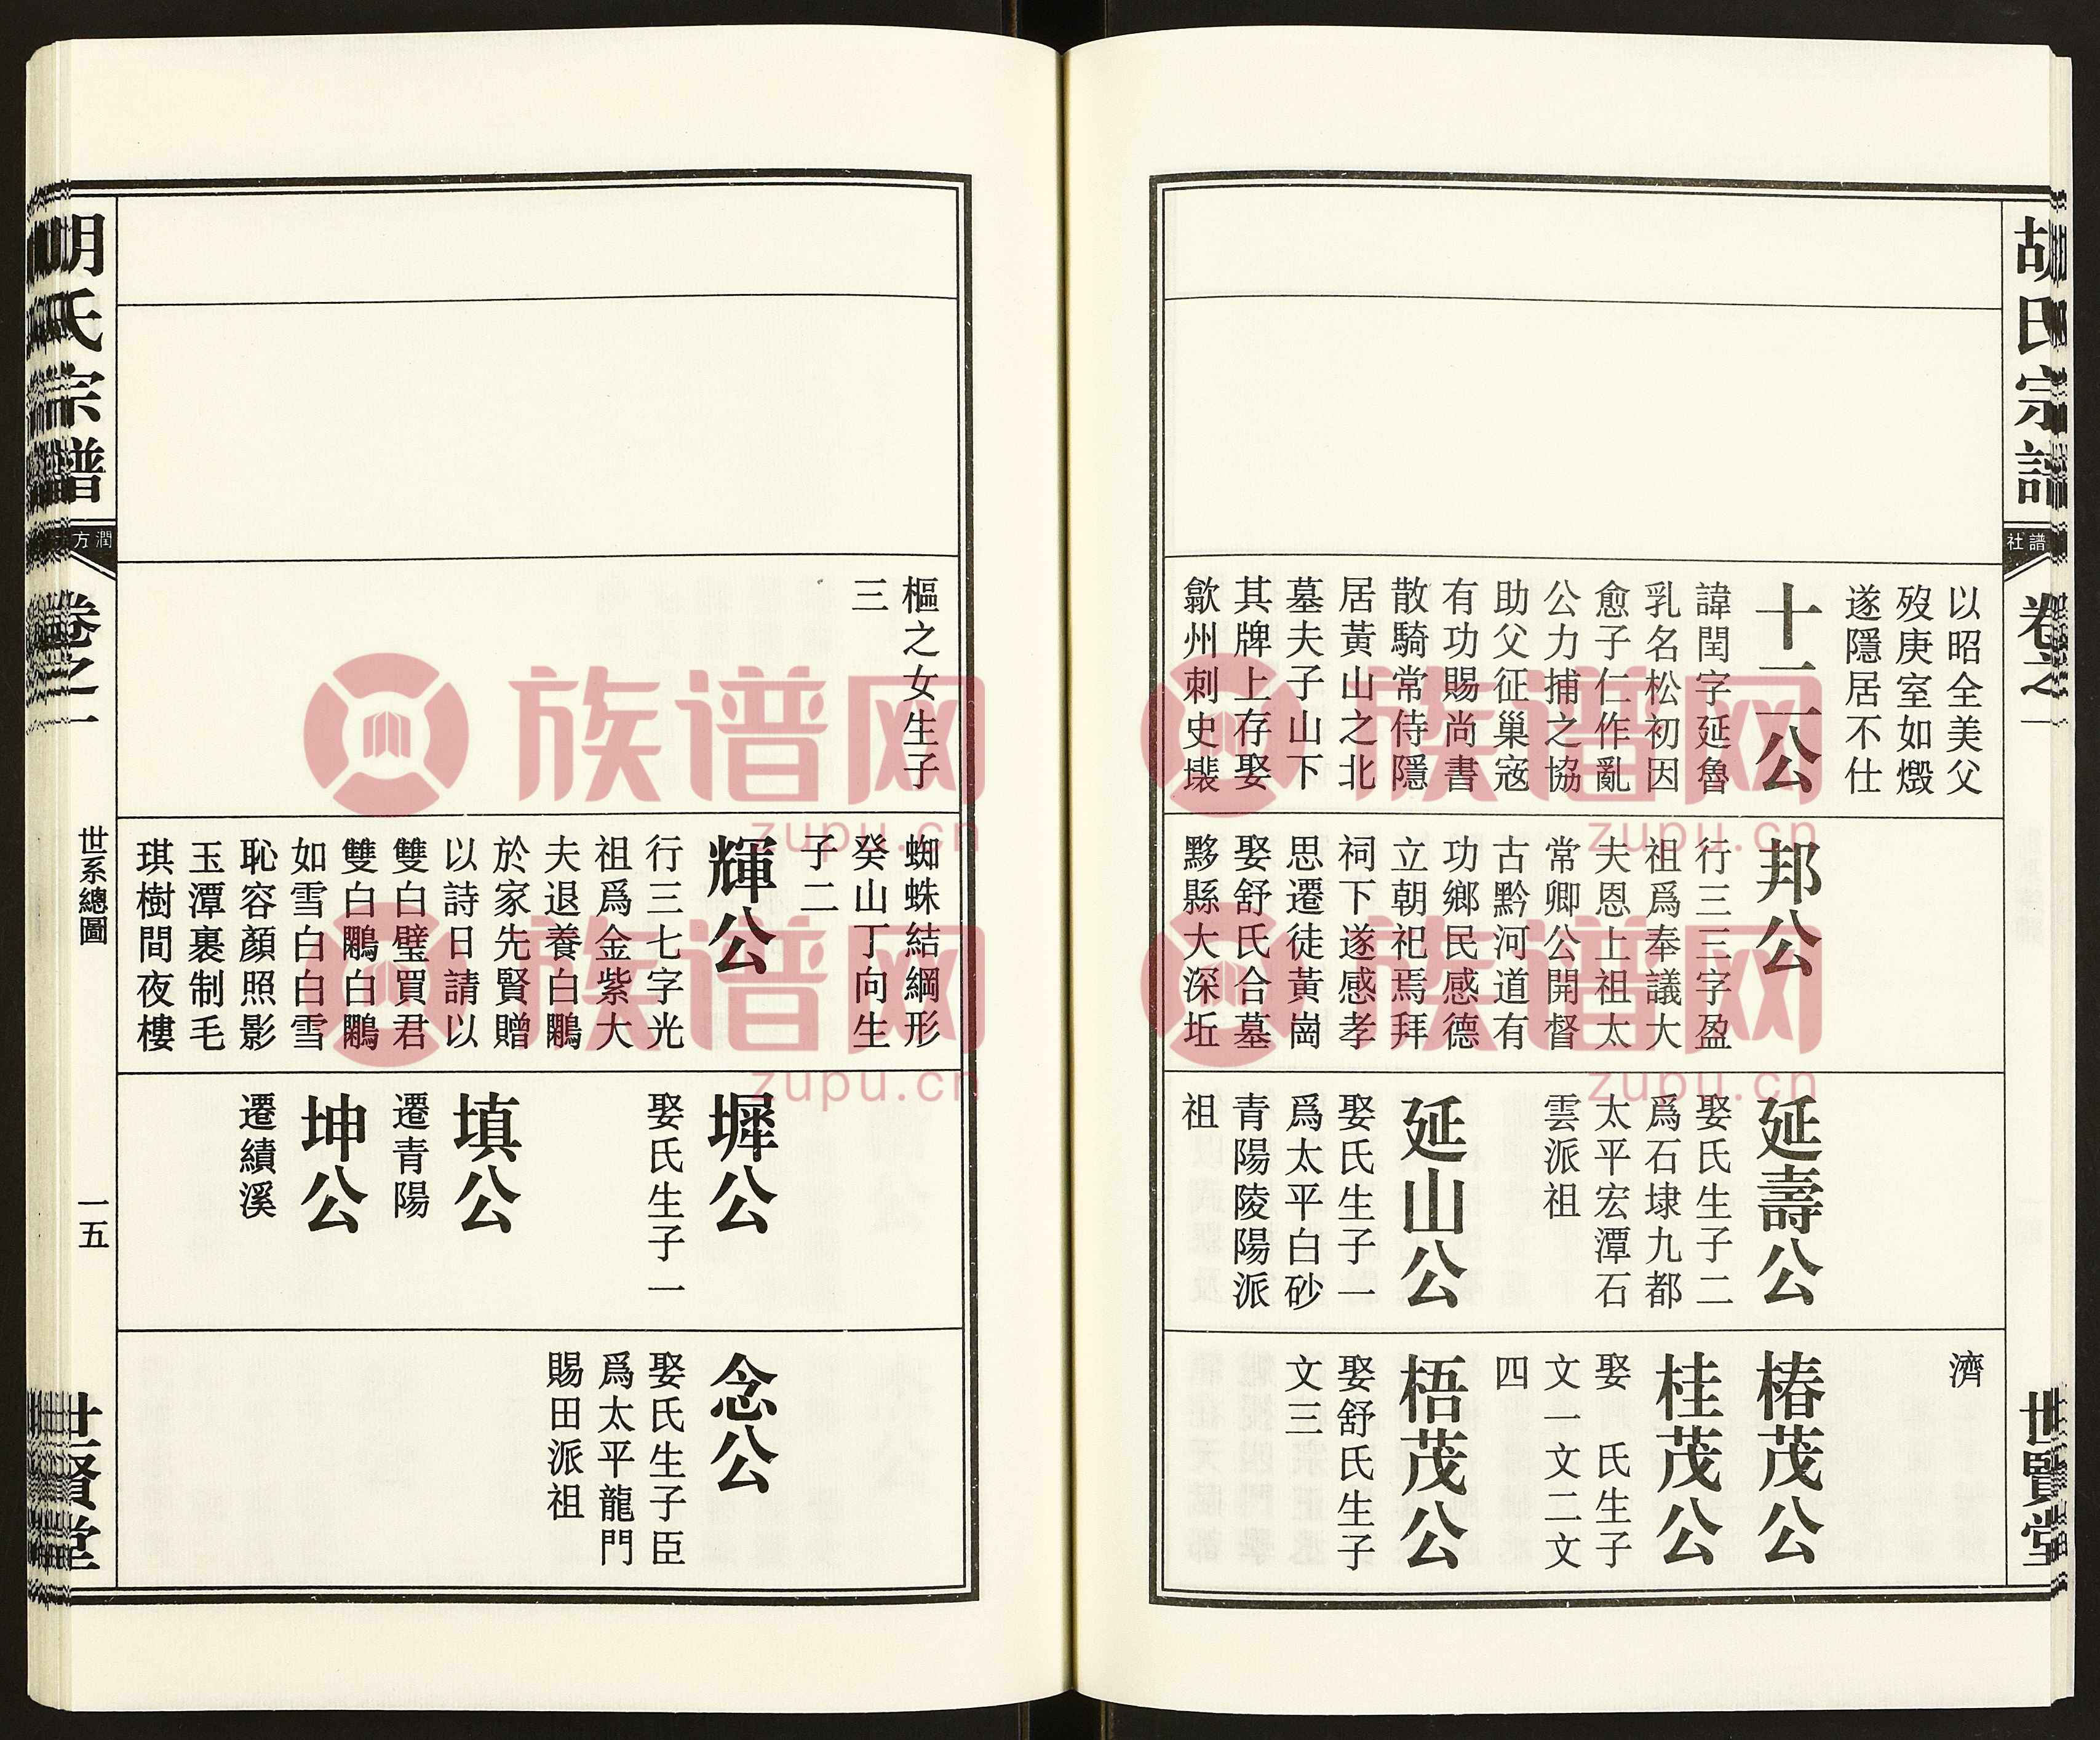 胡氏宗譜
譜社
卷之一
世賢堂
以昭全美父
歿庚室如燬
遂隱居不仕
十二公
諱閏字延魯
乳名松初因
愈子仁作亂
公力捕之協
助父征巢寇
有功賜尚書
散騎常侍隱
居黃山之北
墓夫子山下
其牌上存娶
歙州刺史堁
邦公
行三三字盈
祖爲奉議大
夫恩上祖太
常卿公開督
古黔河道有
功鄉民感德
立朝祀焉拜
祠下遂感孝
思遷徒黃崗
娶舒氏合墓
黟縣大深坵
延壽公
娶氏生子二
爲石埭九都
太平宏潭石
雲派祖
延山公
娶氏生子一
爲太平白砂
青陽陵陽派
祖
濟
椿茂公
桂茂公
娶 氏生子
文一文二文
四
梧茂公
娶舒氏生子
文三
樞之女生子
三
蜘蛛結網形
癸山丁向生
子二
輝公
行三七字光
祖爲金紫大
夫退養白鷴
於家先賢贈
以詩日請以
雙白璧買君
雙白鷴白鷴
如雪白白雪
恥容顏照影
玉潭裹制毛
琪樹間夜樓
墀公
娶氏生子一
填公
遷青陽
坤公
遷績溪
念公
娶氏生子臣
爲太平龍門
賜田派祖
胡氏宗譜
潤方
卷之一
世系總圖
一五
世賢堂
族谱网
zupu.cn
族谱网
zupu.cn
族谱网
zupu.cn
族谱网
zupu.cn